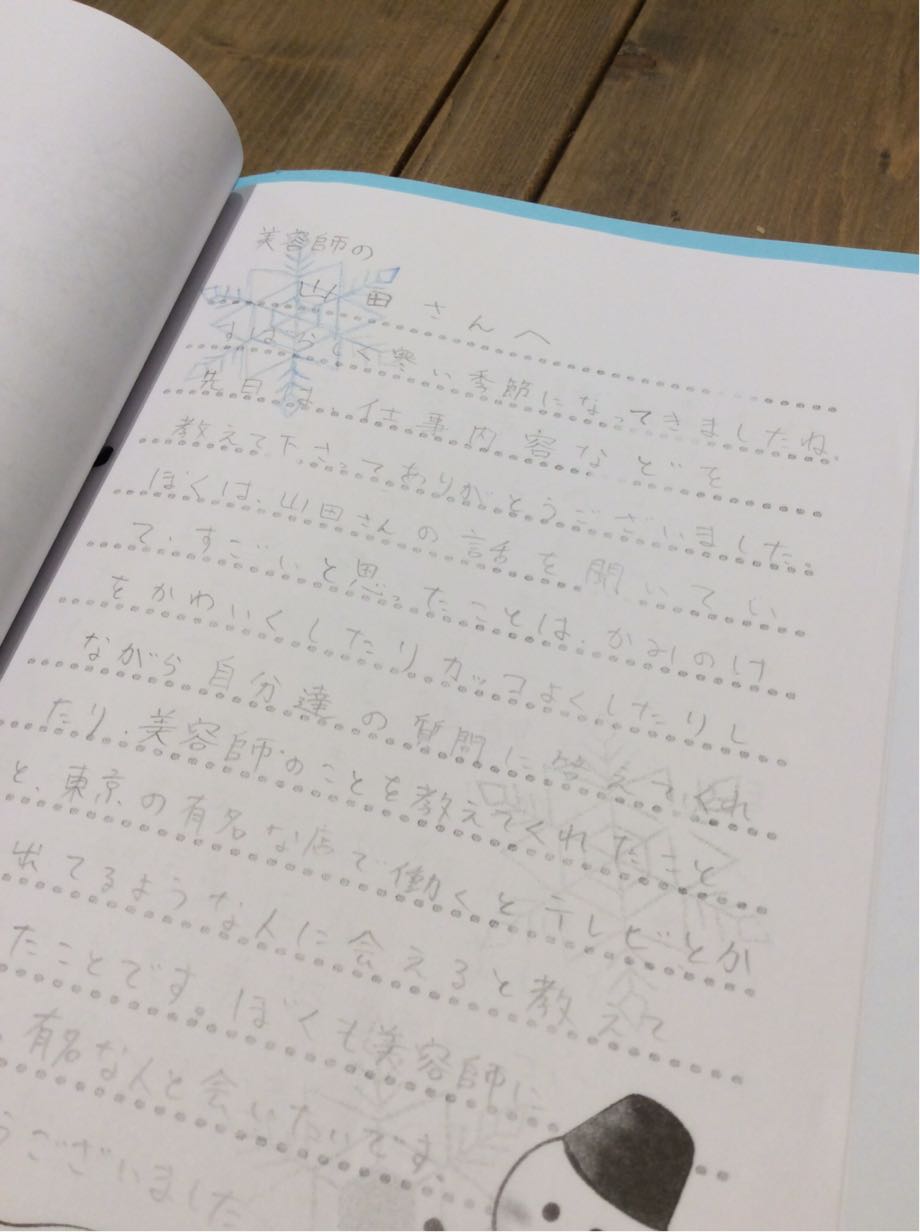 美容師の
山田さんへ
すばらしく寒い季節になってきましたね。
先日は、仕事内容などを
教えて下さってありがとうございました。
ぼくは、山田さんの話を聞いてい
て、すごいと思ったことは、かみのけ
をかわいくしたりカッコよくしたりし
ながら自分達の質問に答えてくれ
たり、美容師のことを教えてくれたこと
と、東京の有名な店で働くとテレビとか
出てるような人に会えると教えて
たことです。ぼくも美容師に
有名な人と会いたいです。
うございました